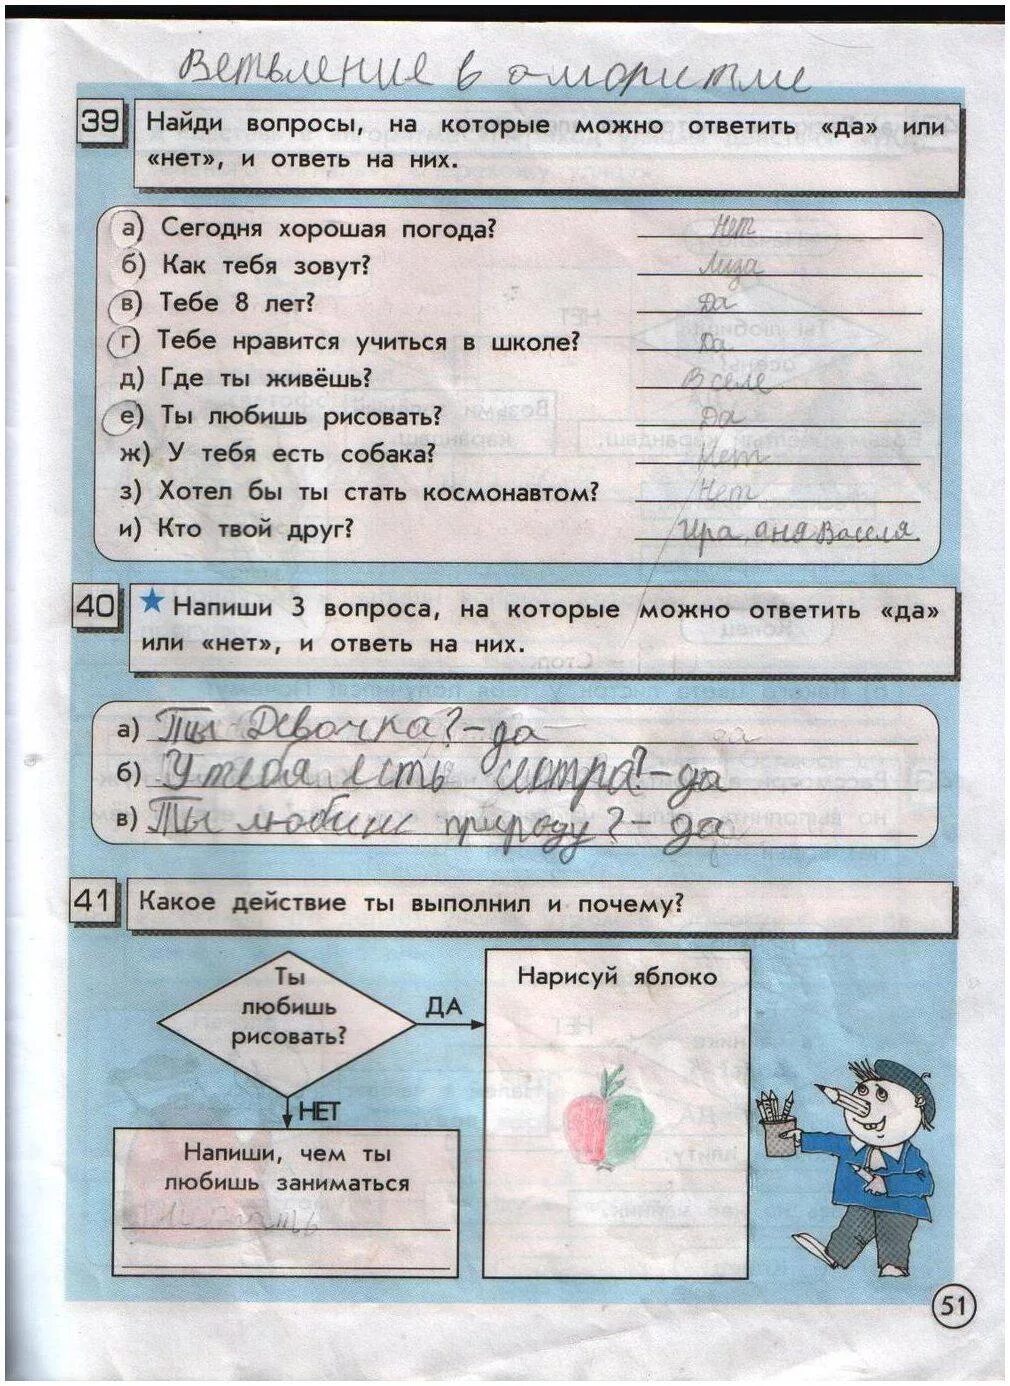 Ветвление в алоритме
39 Найди вопросы, на которые можно ответить «да» или
«нет», и ответь на них.
а) Сегодня хорошая погода? Нет
б) Как тебя зовут? Лиза
в) Тебе 8 лет? Да
г) Тебе нравится учиться в школе? Да
д) Где ты живёшь? В селе
е) Ты любишь рисовать? Да
ж) У тебя есть собака? Нет
з) Хотел бы ты стать космонавтом? Нет
и) Кто твой друг? Ира, аня
40 ★ Напиши 3 вопроса, на которые можно ответить «да»
или «нет», и ответь на них.
а) Ты Девочка? - да
б) У тебя есть сестра? - да
в) Ты любиш природу? - да
41 Какое действие ты выполнил и почему?
Ты
любишь
рисовать?
ДА
Нарисуй яблоко
НЕТ
Напиши, чем ты
любишь заниматься
51